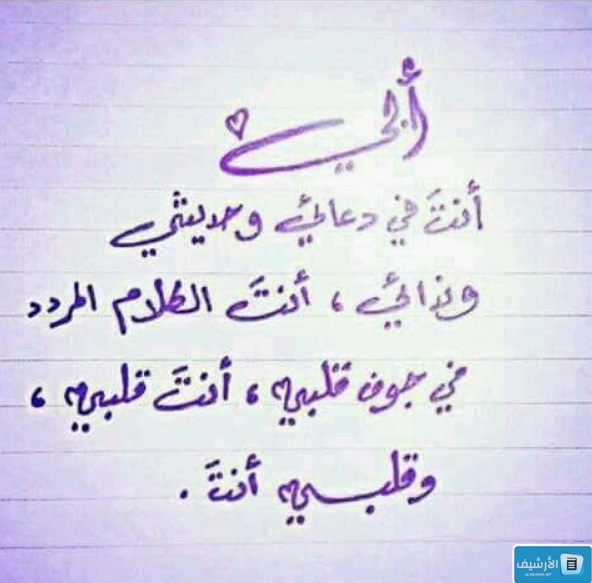 أبي
أنتَ في دعائي وحديثي
وندائي ، أنتَ الكلام المردد
في جوف قلبي ، أنتَ قلبي ،
وقلبي أنتَ .
الأرشيف